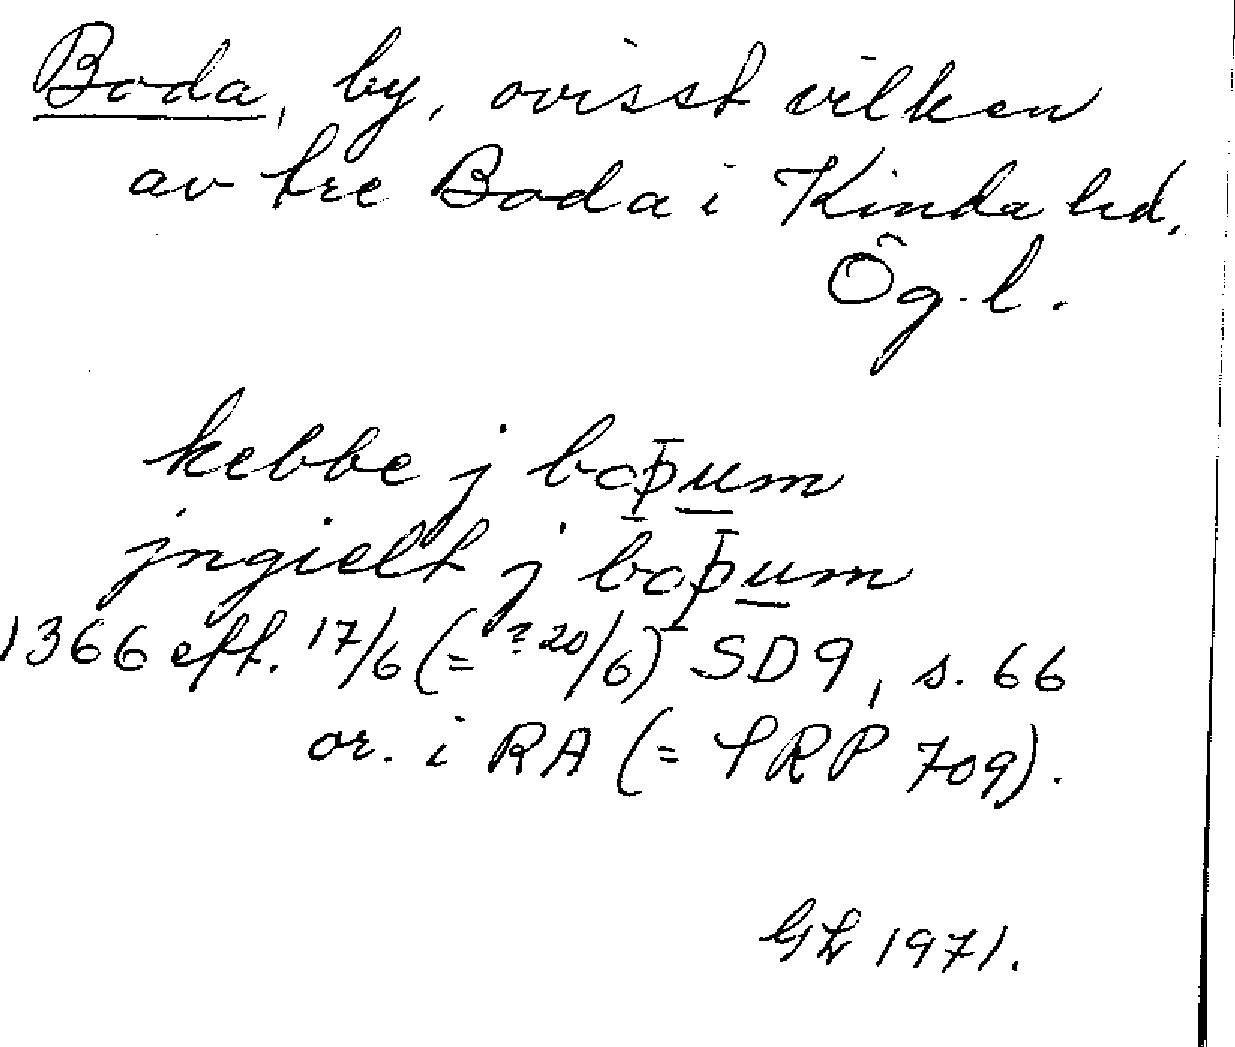 Boda, by, ovisst vilken
av tre Boda i Kinda hd,
Ög. l.
kebbe j boþum
jngielt j boþum
1366 eft. 17/6 (= ? 20/6) SD 9, s. 66
or. i RA (= SRP 709).
1971.